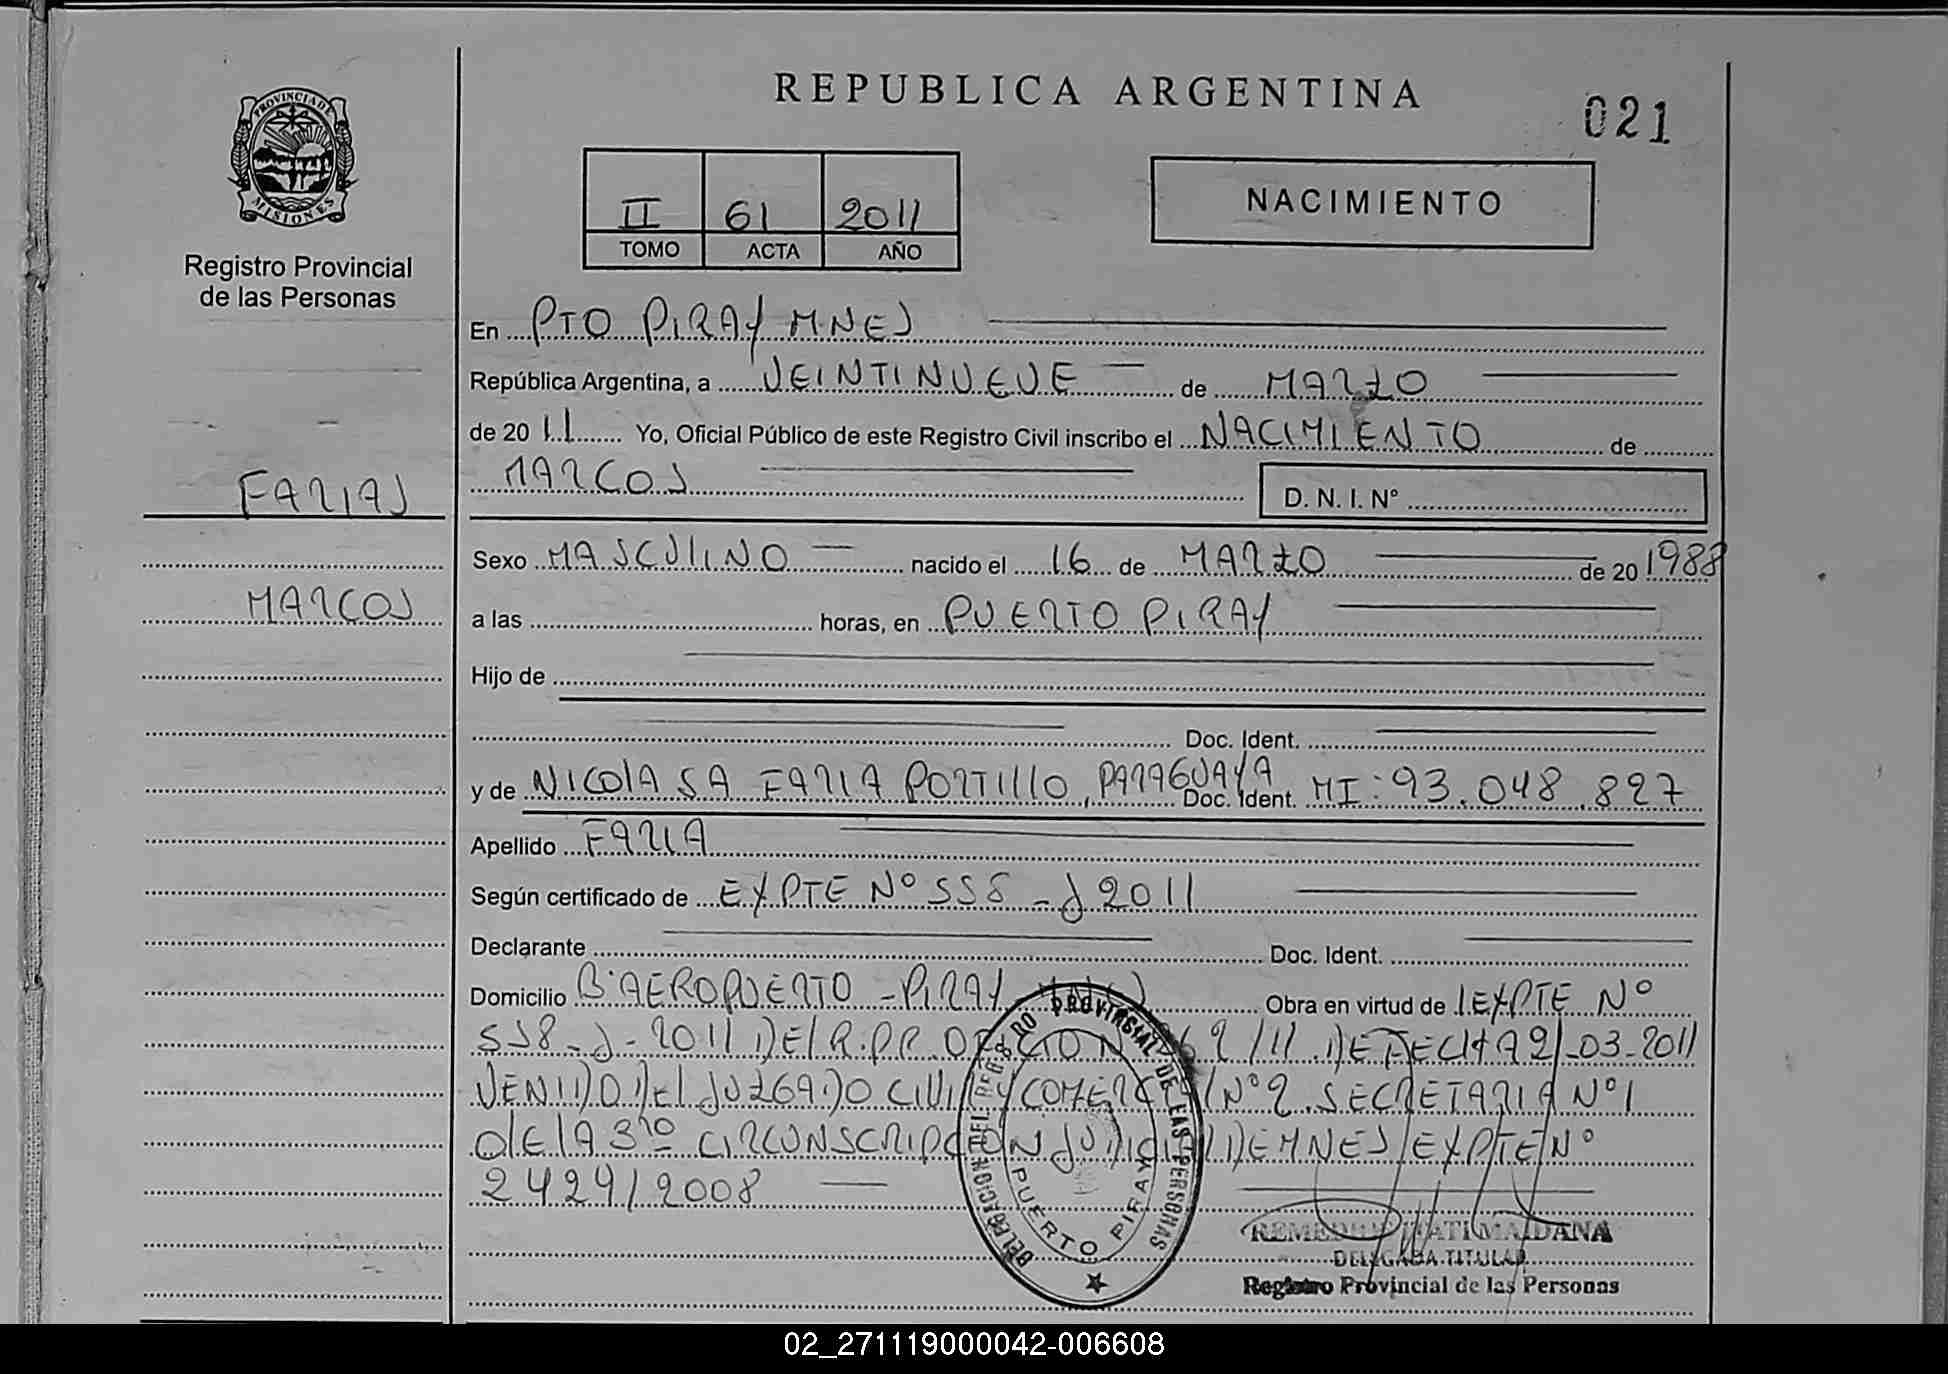 REPUBLICA ARGENTINA
021
PROVINCIA DE
MISIONES
Registro Provincial
de las Personas
II 61 2011
TOMO ACTA AÑO
NACIMIENTO
En PTO PIRAY MNES
República Argentina, a VEINTINUEVE de MARZO
de 20 11 Yo, Oficial Público de este Registro Civil inscribo el NACIMIENTO de
FARIAS
MARCOS
D. N. I. Nº
Sexo MASCULINO nacido el 16 de MARZO de 20 1988
MARCOS
a las horas, en PUERTO PIRAY
Hijo de
Doc. Ident.
y de NICOLASA FARIA PORTILLO, PARAGUAYA Doc. Ident. MI: 93.048.827
Apellido FARIA
Según certificado de EXPTE Nº 558-J 2011
Declarante Doc. Ident.
Domicilio Bº AEROPUERTO - PIRAY Obra en virtud de EXPTE Nº
558-J-2011 DEL R.P.P. /11 DE FECHA 21-03-2011
VENIDO DEL JUZGADO CIVIL Y COMERCIAL Nº 2 SECRETARIA Nº 1
DE LA 3rª CIRCUNSCRIPCION JUDICIAL DE MNES EXPTE Nº
2429/2008
DELEGACION DEL REGISTRO PROVINCIAL DE LAS PERSONAS
PUERTO PIRAY
MAIDANA
DELEGADA TITULAR
Registro Provincial de las Personas
02_271119000042-006608